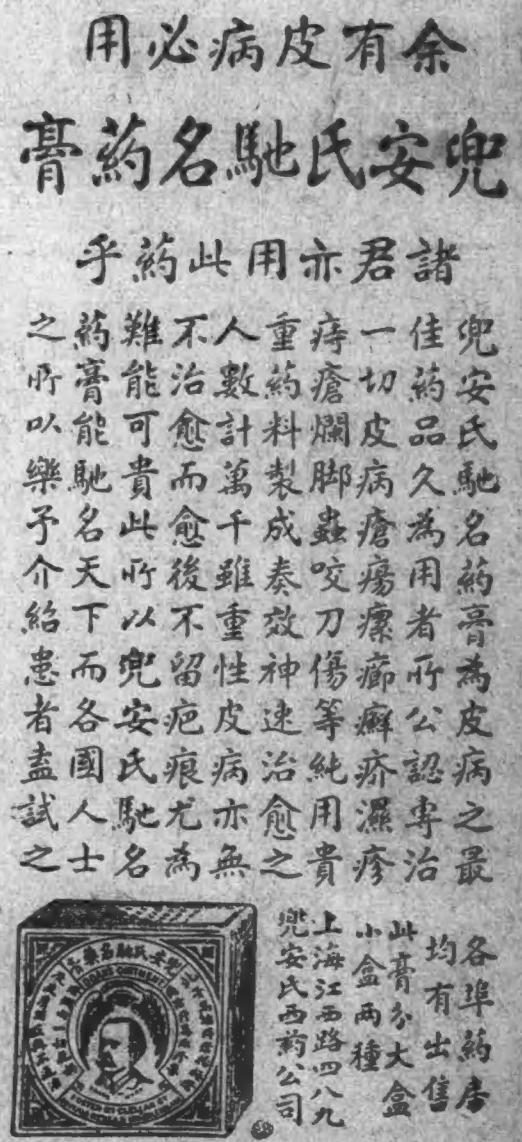 余有皮病必用
兜安氏馳名药膏
諸君亦用此药乎
兜安氏馳名药膏為皮病之最
佳药品久為用者所公認専治
一切皮病瘡瘍瘰癤癬疥濕疹
痔瘡爛脚蟲咬刀傷等純用貴
重药料製成奏效神速治愈之
人數計萬千雖重性皮病亦無
不治愈而愈後不留疤痕尤為
難能可貴此所以兜安氏馳名
药膏能馳名天下而各國人士
之所以樂予介紹患者盍試之
各埠药房
均有出售
此膏分大盒
小盒两種
上海江西路四八九
兜安氏西药公司
DOANS OINTMENT